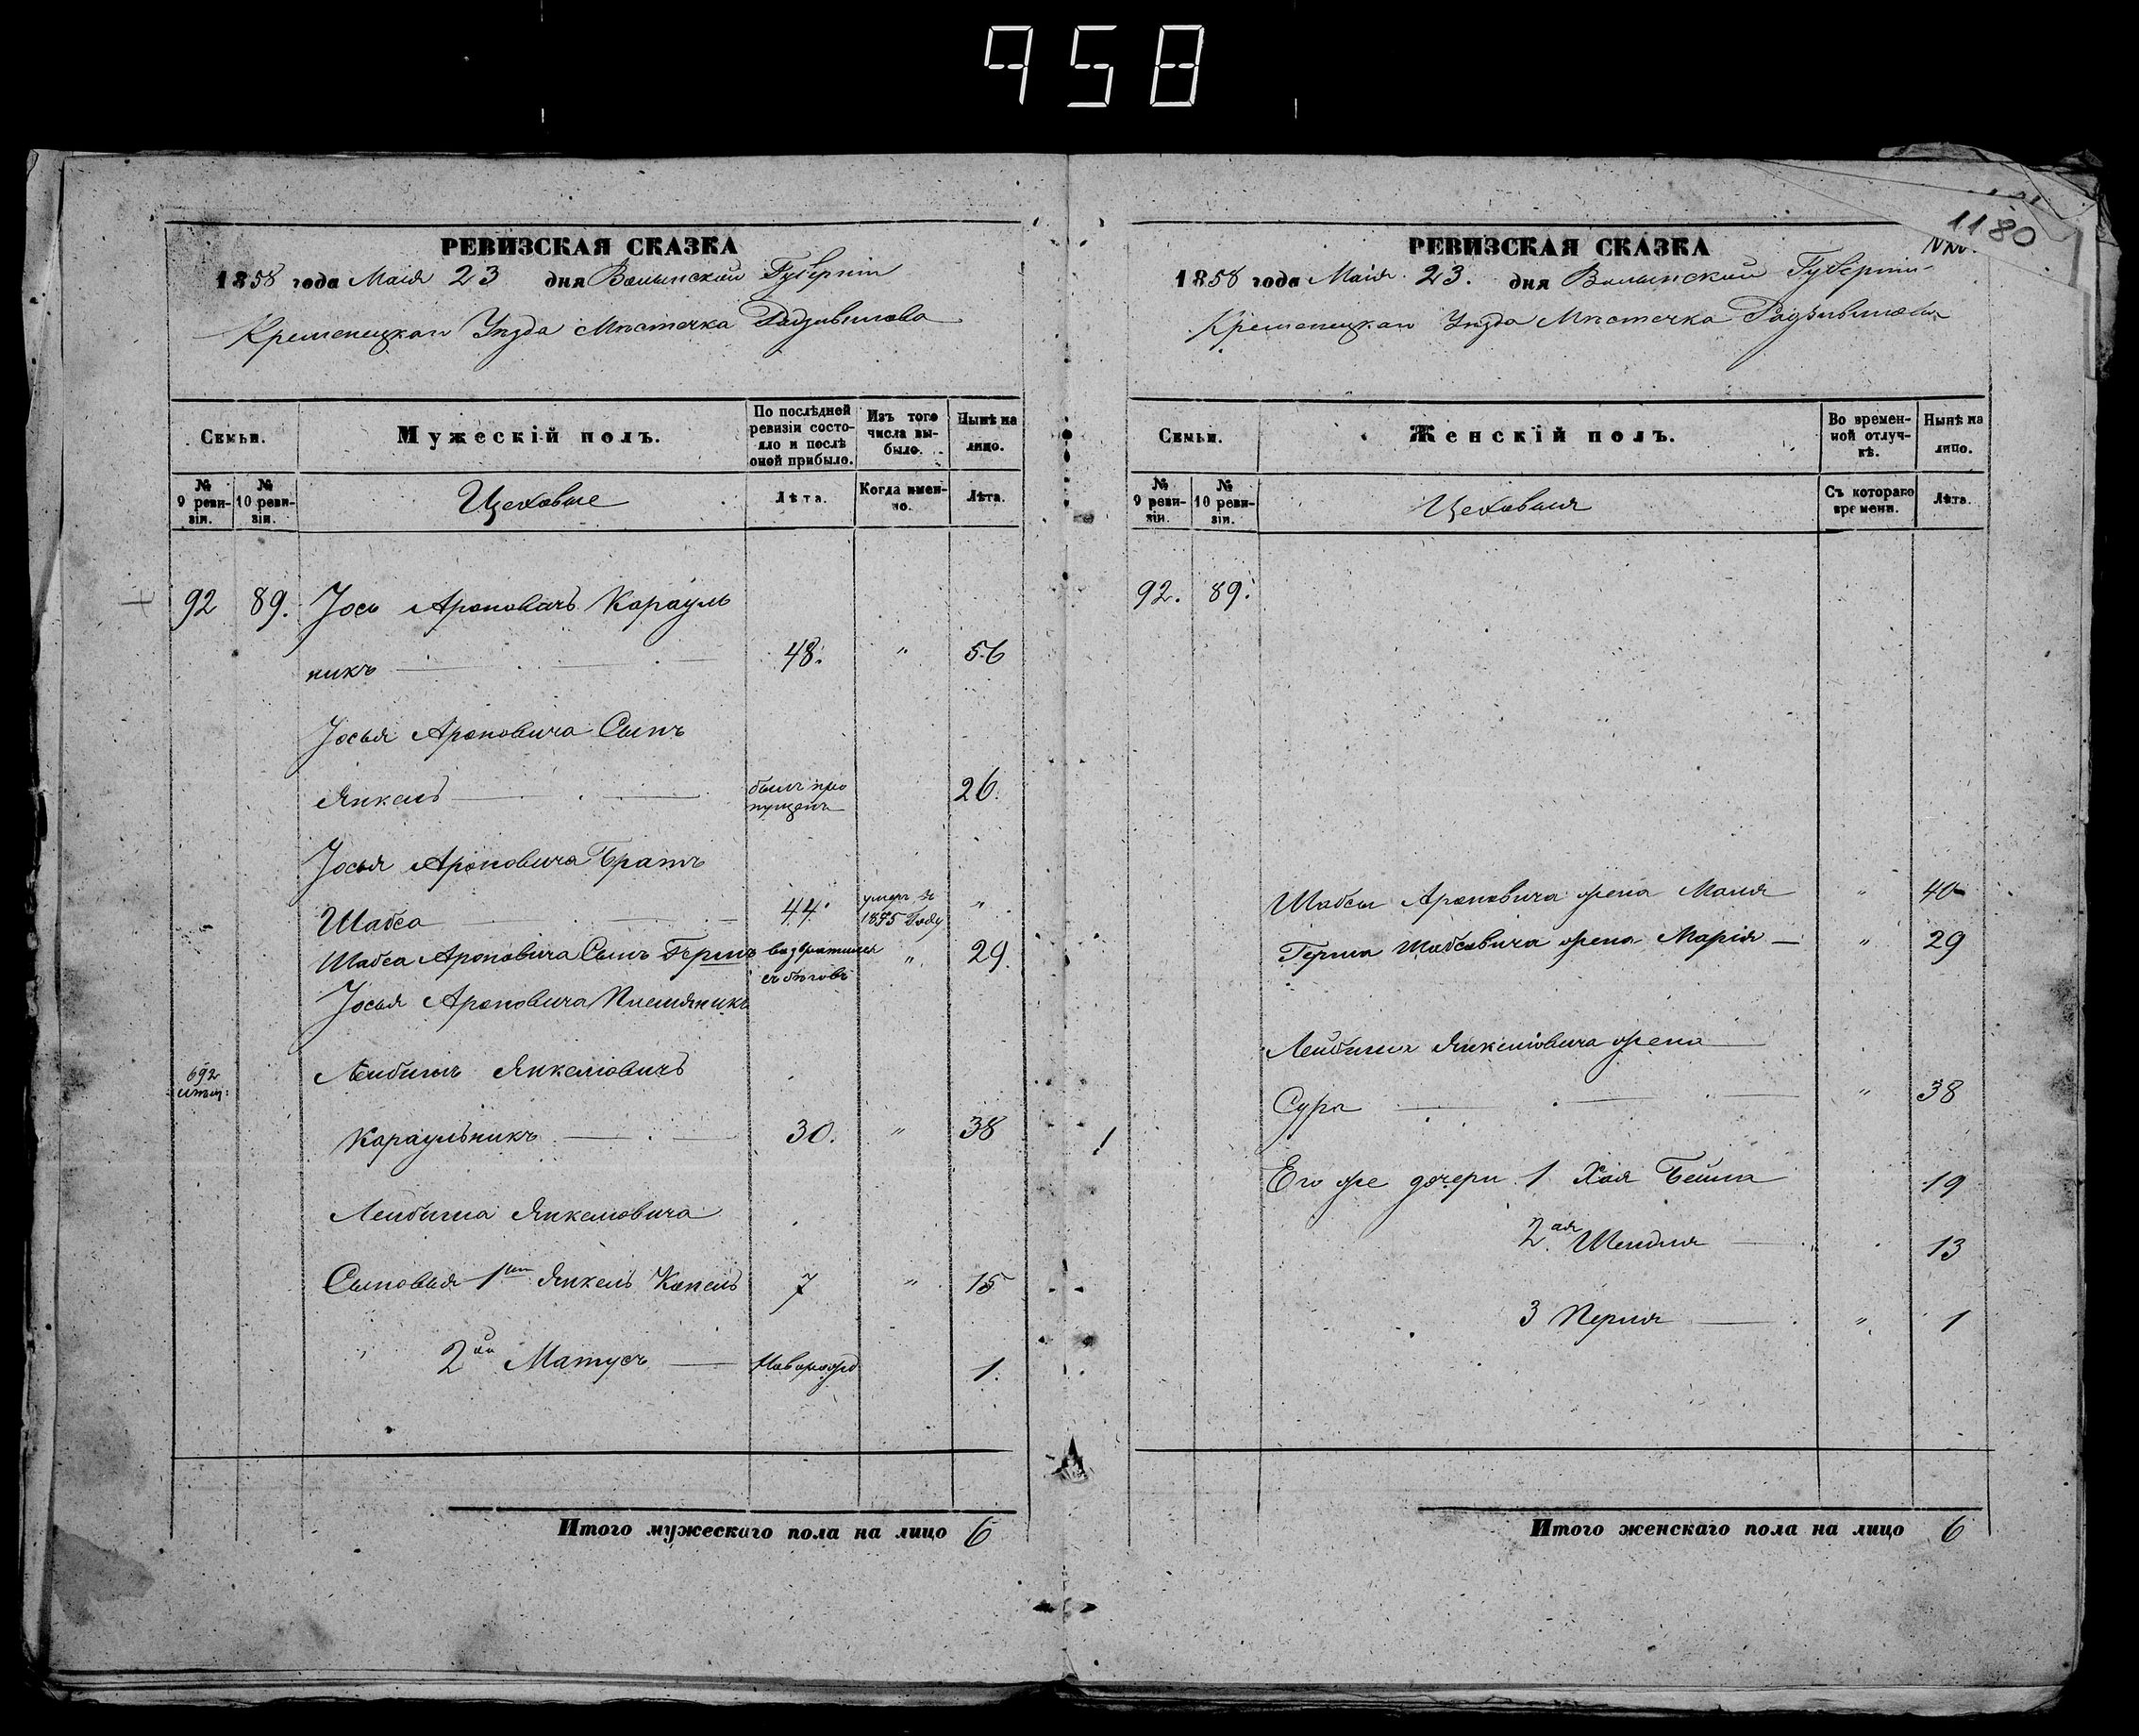 958
1180
РЕВИЗСКАЯ СКАЗКА
1858 года Маія 23 дня Волынской Губерніи
Кременецкаго Уѣзда Мѣстечка Радзивилова
Семьи.
Мужескій полъ.
По послѣдней ревизіи состояло и послѣ оной прибыло.
Изъ того числа выбыло.
Нынѣ на лицо.
№ 9 ревизіи.
№ 10 ревизіи.
Цеховые
Лѣта.
Когда именно.
Лѣта.
92 89. Іось Ароновичъ Карауль
никъ 48. " 56
Іосья Ароновича Сынъ
Янкель былъ про пущенъ 26.
Іосья Ароновича Братъ
Шабса 44. умеръ въ 1855 Году "
Шабса Ароновича Сынъ Гершъ возвратился съ бѣговъ " 29.
Іосья Ароновича Племяникъ
692 Лейбишъ Янкелювичъ
Караульникъ 30. " 38
Лейбиша Янкелювича
Сыновья 1ый Янкель Копель 7 " 15
2й Матусъ Новорожд 1.
Итого мужескаго пола на лицо 6
РЕВИЗСКАЯ СКАЗКА
1858 года Маія 23. дня Волынской Губерніи
Кременецкаго Уѣзда Мѣстечка Радзивилова
Семьи.
Женскій полъ.
Во временной отлучкѣ.
Нынѣ на лицо.
№ 9 ревизіи.
№ 10 ревизіи.
Цеховыя
Съ котораго времени.
Лѣта.
92. 89.
Шабсы Ароновича жена Маля " 40
Герша Шабсовича жена Марія " 29
Лейбиша Янкелювича жена
Сура " 38
Его же дочери 1 Хая Бейла 19
2ая Шендля " 13
3 Перля " 1
Итого женскаго пола на лицо 6